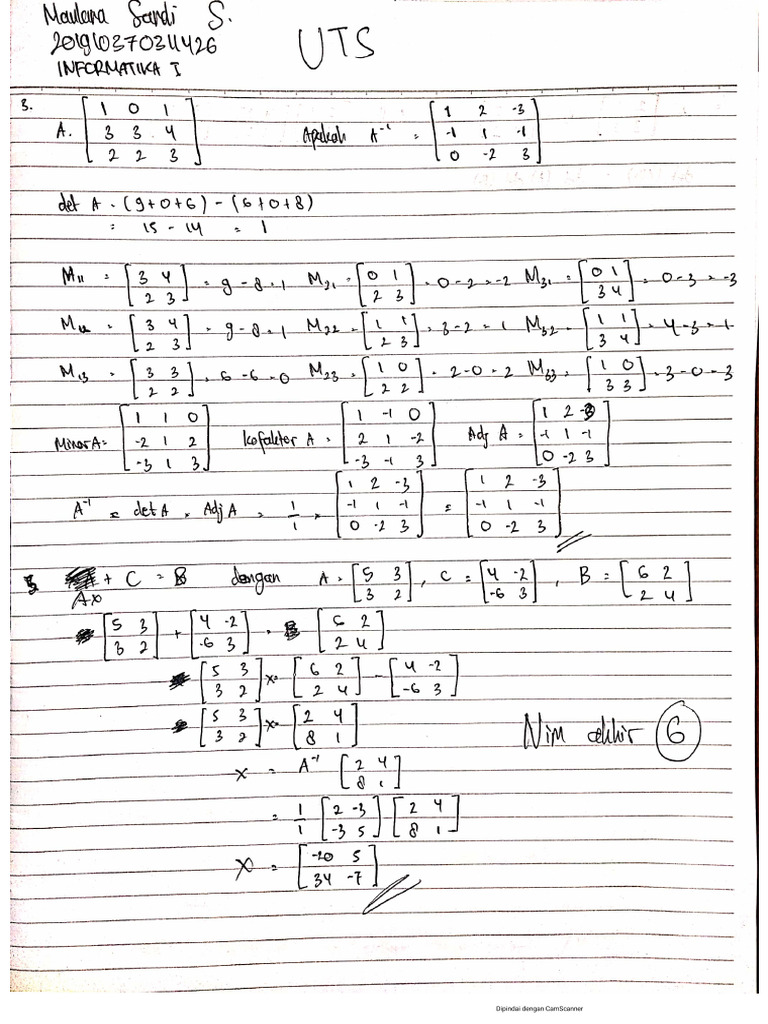 Maulana Sandi S.
201910370311426
INFORMATIKA I
UTS
3.
A. [1 0 1; 3 3 4; 2 2 3] Apakah A⁻¹ = [1 2 -3; -1 1 -1; 0 -2 3]
det A = (9+0+6) - (6+0+8)
= 15 - 14 = 1
M11 = [3 4; 2 3] = 9 - 8 = 1 M21 = [0 1; 2 3] = 0 - 2 = -2 M31 = [0 1; 3 4] = 0 - 3 = -3
M12 = [3 4; 2 3] = 9 - 8 = 1 M22 = [1 1; 2 3] = 3 - 2 = 1 M32 = [1 1; 3 4] = 4 - 3 = 1
M13 = [3 3; 2 2] = 6 - 6 = 0 M23 = [1 0; 2 2] = 2 - 0 = 2 M33 = [1 0; 3 3] = 3 - 0 = 3
Minor A = [1 1 0; -2 1 2; -3 1 3] Kofaktor A = [1 -1 0; 2 1 -2; -3 -1 3] Adj A = [1 2 -3; -1 1 -1; 0 -2 3]
A⁻¹ = det A × Adj A = 1/1 × [1 2 -3; -1 1 -1; 0 -2 3] = [1 2 -3; -1 1 -1; 0 -2 3]
Ax + C = B dengan A = [5 3; 3 2], C = [4 -2; -6 3], B = [6 2; 2 4]
[5 3; 3 2] + [4 -2; -6 3] = [6 2; 2 4]
[5 3; 3 2] x = [6 2; 2 4] - [4 -2; -6 3]
[5 3; 3 2] x = [2 4; 8 1]
Nim akhir 6
x = A⁻¹ [2 4; 8 1]
= 1/1 [2 -3; -3 5] [2 4; 8 1]
x = [-20 5; 34 -7]
Dipindai dengan CamScanner